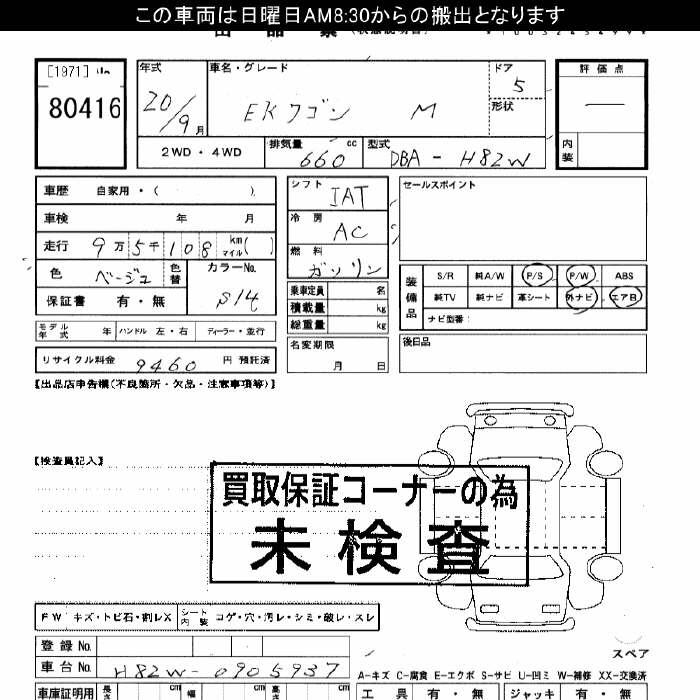 この車両は日曜日AM8:30からの搬出となります
[1971]
80416
年式
20/9月
車名・グレード
EKワゴン M
ドア
5
形状
評価点
—
内装
2WD・4WD
排気量 cc
660
型式
DBA-H82W
車歴 自家用・( ).
車検 年 月
走行 9万5千108 km マイル( )
色 ベージュ 色替
カラーNo.
S14
保証書 有・無
シフト
IAT
冷房
AC
燃料
ガソリン
乗車定員 名
積載量 kg
総重量 kg
セールスポイント
装備品
S/R 純A/W P/S P/W ABS
純TV 純ナビ 革シート 外ナビ エアB
ナビ型番:
モデル年式 年 ハンドル 左・右 ディーラー・並行
リサイクル料金 9460 円 預託済
名変期限
月 日
後日品
【出品店申告欄(不良箇所・欠品・注意事項等)】
【検査員記入】
買取保証コーナーの為
未検査
FW キズ・トビ石・割レX
シート内装 コゲ・穴・汚レ・シミ・破レ・スレ
登録No.
車台No. H82W-0905937
スペア
A-キズ C-腐食 E-エクボ S-サビ U-凹ミ W-補修 XX-交換済
車庫証明用 長さ cm 幅 cm 高さ cm
工具 有・無 ジャッキ 有・無